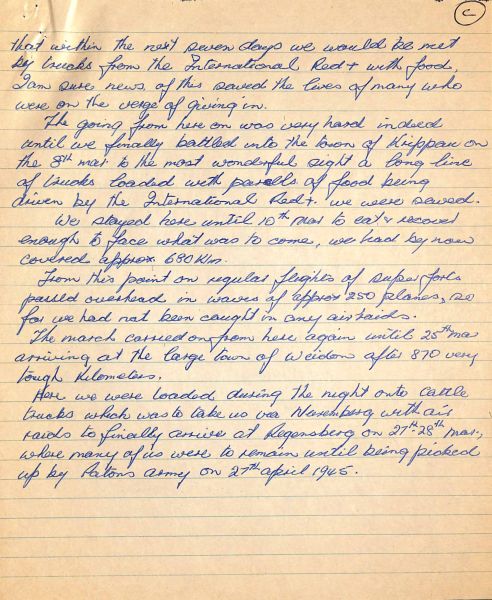 C
that within the next seven days we would be met
by trucks from the International Red + with food,
I am sure news of this saved the lives of many who
were on the verge of giving in.
The going from here on was very hard indeed
until we finally battled into the town of Krippan on
the 8th mar to the most wonderful sight a long line
of trucks loaded with parcells of food being
driven by the International Red+. we were saved.
We stayed here until 10th Mar to eat & recover
enough to face what was to come, we had by now
covered approx 680 Km.
From this point on regular flights of super forts
passed overhead in waves of approx 250 planes, so
far we had not been caught in any air raids.
The march carried on from here again until 25th mar
arriving at the large town of Weidon after 870 very
tough Kilometers.
Here we were loaded during the night onto cattle
trucks which was to take us via Neremberg with air
raids to finally arrive at Regensberg on 27th-28th Mar,
where many of us were to remain until being picked
up by Patons army on 27th april 1945.